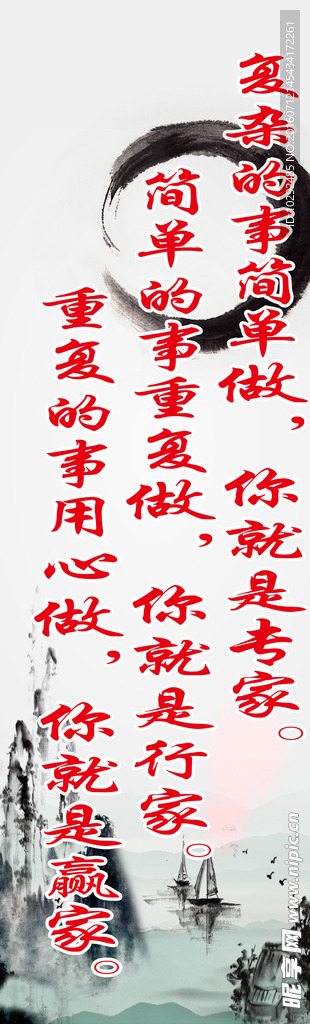 复杂的事简单做，你就是专家。
简单的事重复做，你就是行家。
重复的事用心做，你就是赢家。
昵享网 www.nipic.cn